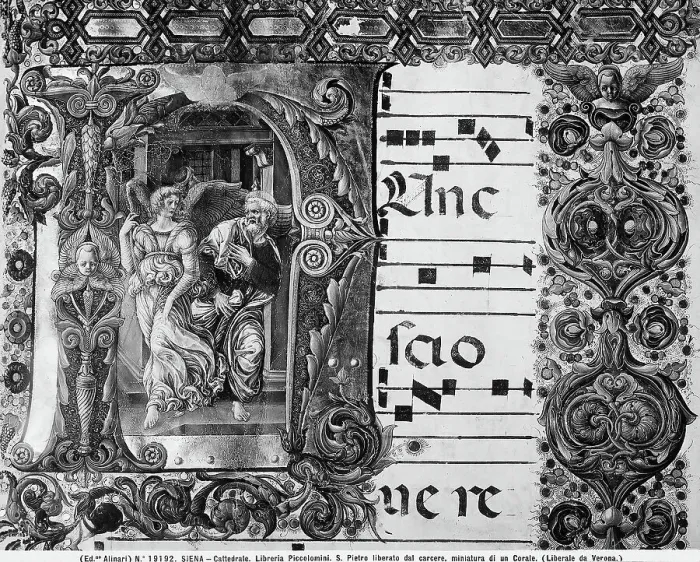 Unc
scio
ue re
(Ed.ni Alinari) N.° 19192. SIENA – Cattedrale. Libreria Piccolomini. S. Pietro liberato dal carcere, miniatura di un Corale. (Liberale da Verona.)